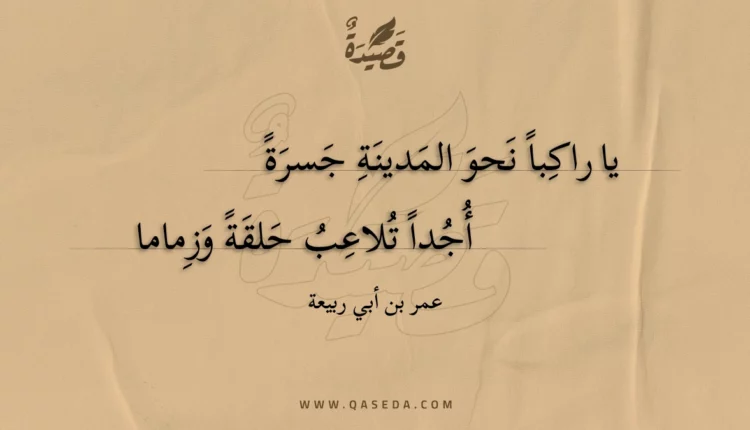 قَصِيدَةٌ
يا راكِباً نَحوَ المَدينَةِ جَسرَةً
أُجُداً تُلاعِبُ حَلقَةً وَزِماما
عمر بن أبي ربيعة
WWW.QASEDA.COM